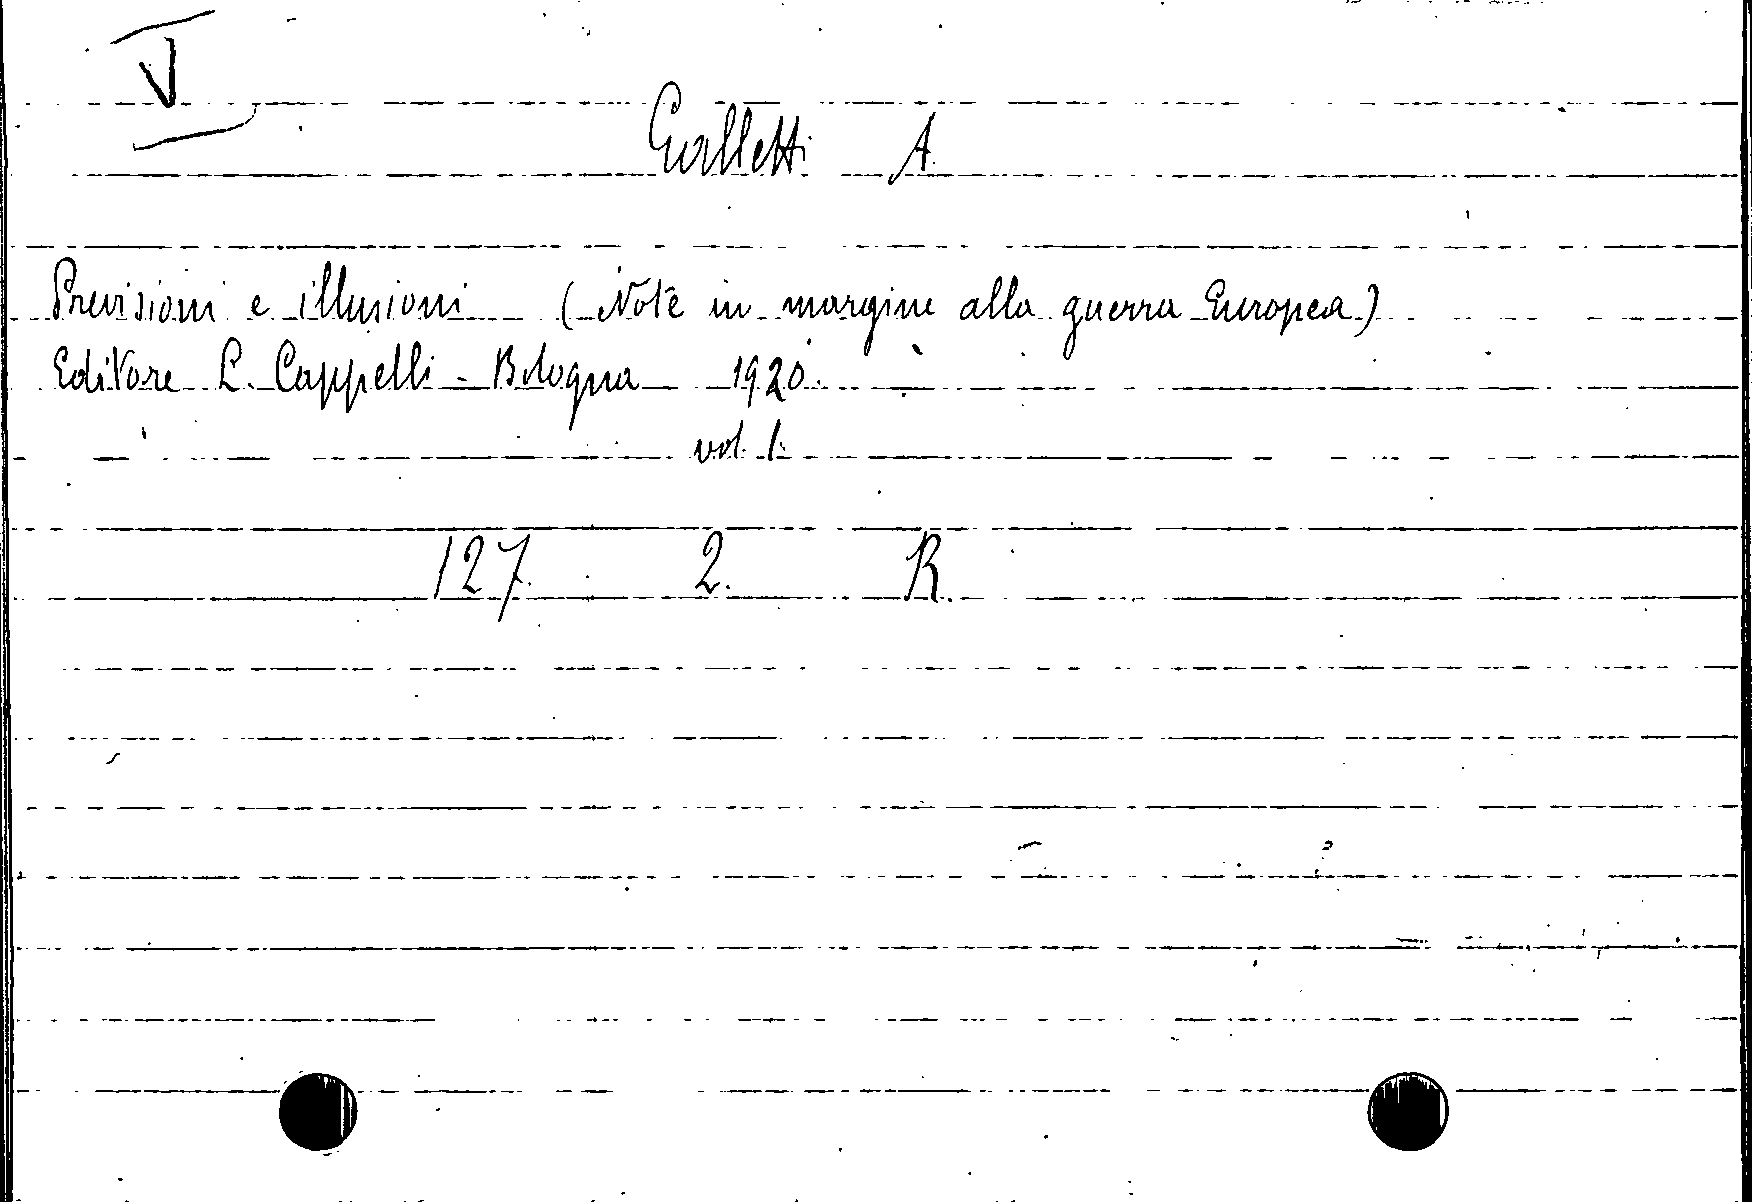 V
Galletti A.
Previsioni e illusioni (Note in margine alla guerra Europea)
Editore L. Cappelli - Bologna 1920.
vol. 1.
127 2. R.